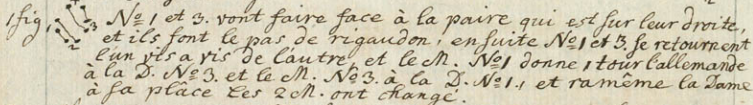 1 fig. 2 1 3 4 No 1 et 3. vont faire face à la paire qui est sur leur droite,
et ils font le pas de rigaudon, ensuite No 1 et 3. se retournent
l'un vis a vis de l'autre, et le M. No 1 donne 1 tour l'allemande
à la D. No 3. et le M. No 3. à la D. No 1., et ramême la Dame
à sa place les 2 M. ont changé.